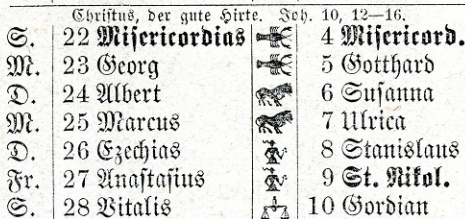 Christus, der gute Hirte. Joh. 10, 12—16.
S. 22 Misericordias 4 Misericord.
M. 23 Georg 5 Gotthard
D. 24 Albert 6 Susanna
M. 25 Marcus 7 Ulrica
D. 26 Ezechias 8 Stanislaus
Fr. 27 Anastasius 9 St. Nikol.
S. 28 Vitalis 10 Gordian